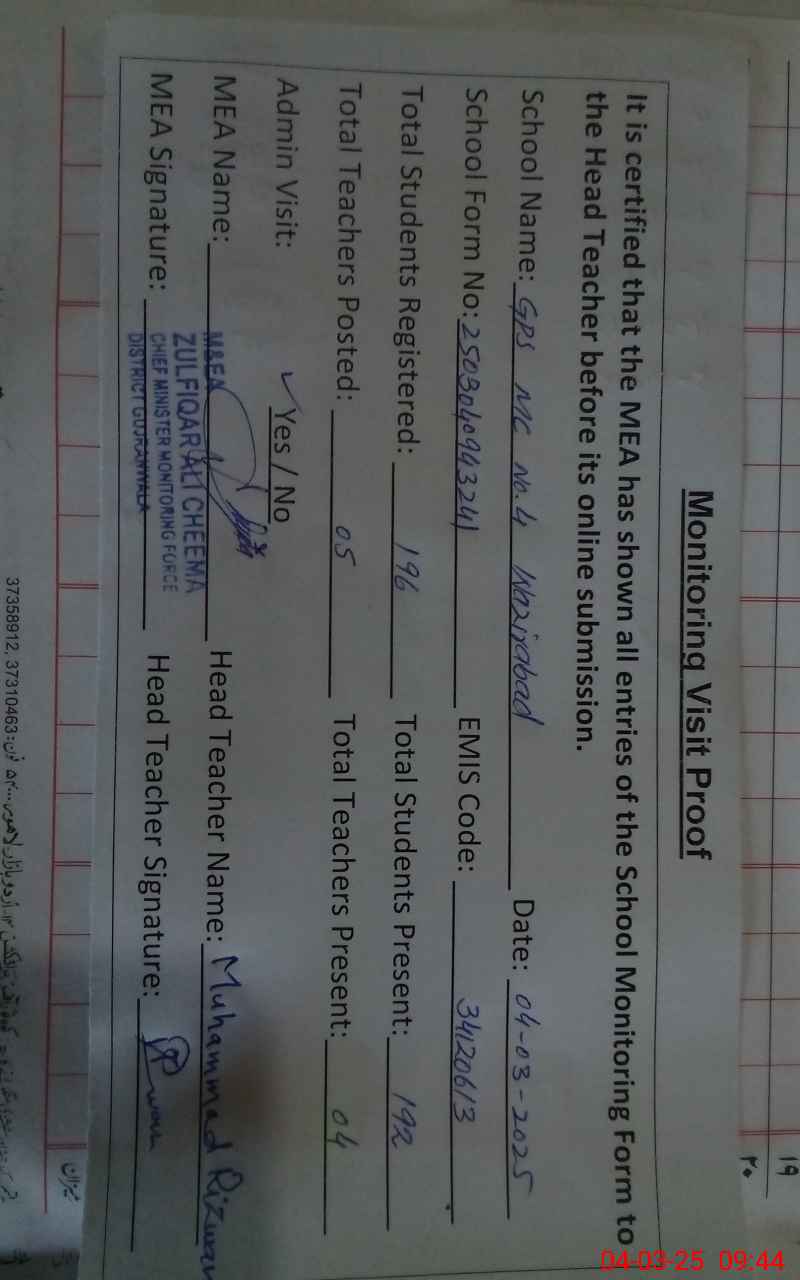 Monitoring Visit Proof
It is certified that the MEA has shown all entries of the School Monitoring Form to
the Head Teacher before its online submission.
School Name: GPS MC No.4 Wazirabad Date: 04-03-2025
School Form No: 2503040943241 EMIS Code: 34120613
Total Students Registered: 196 Total Students Present: 192
Total Teachers Posted: 05 Total Teachers Present: 04
Admin Visit: ✓ Yes / No
MEA Name: Head Teacher Name: Muhammad Rizwan
M&EA
ZULFIQAR ALI CHEEMA
CHIEF MINISTER MONITORING FORCE
DISTRICT GUJRANWALA
MEA Signature: Head Teacher Signature: Rizwan
۱۹
۲۰
میزان
فون: 37310463, 37358912
04-03-25 09:44